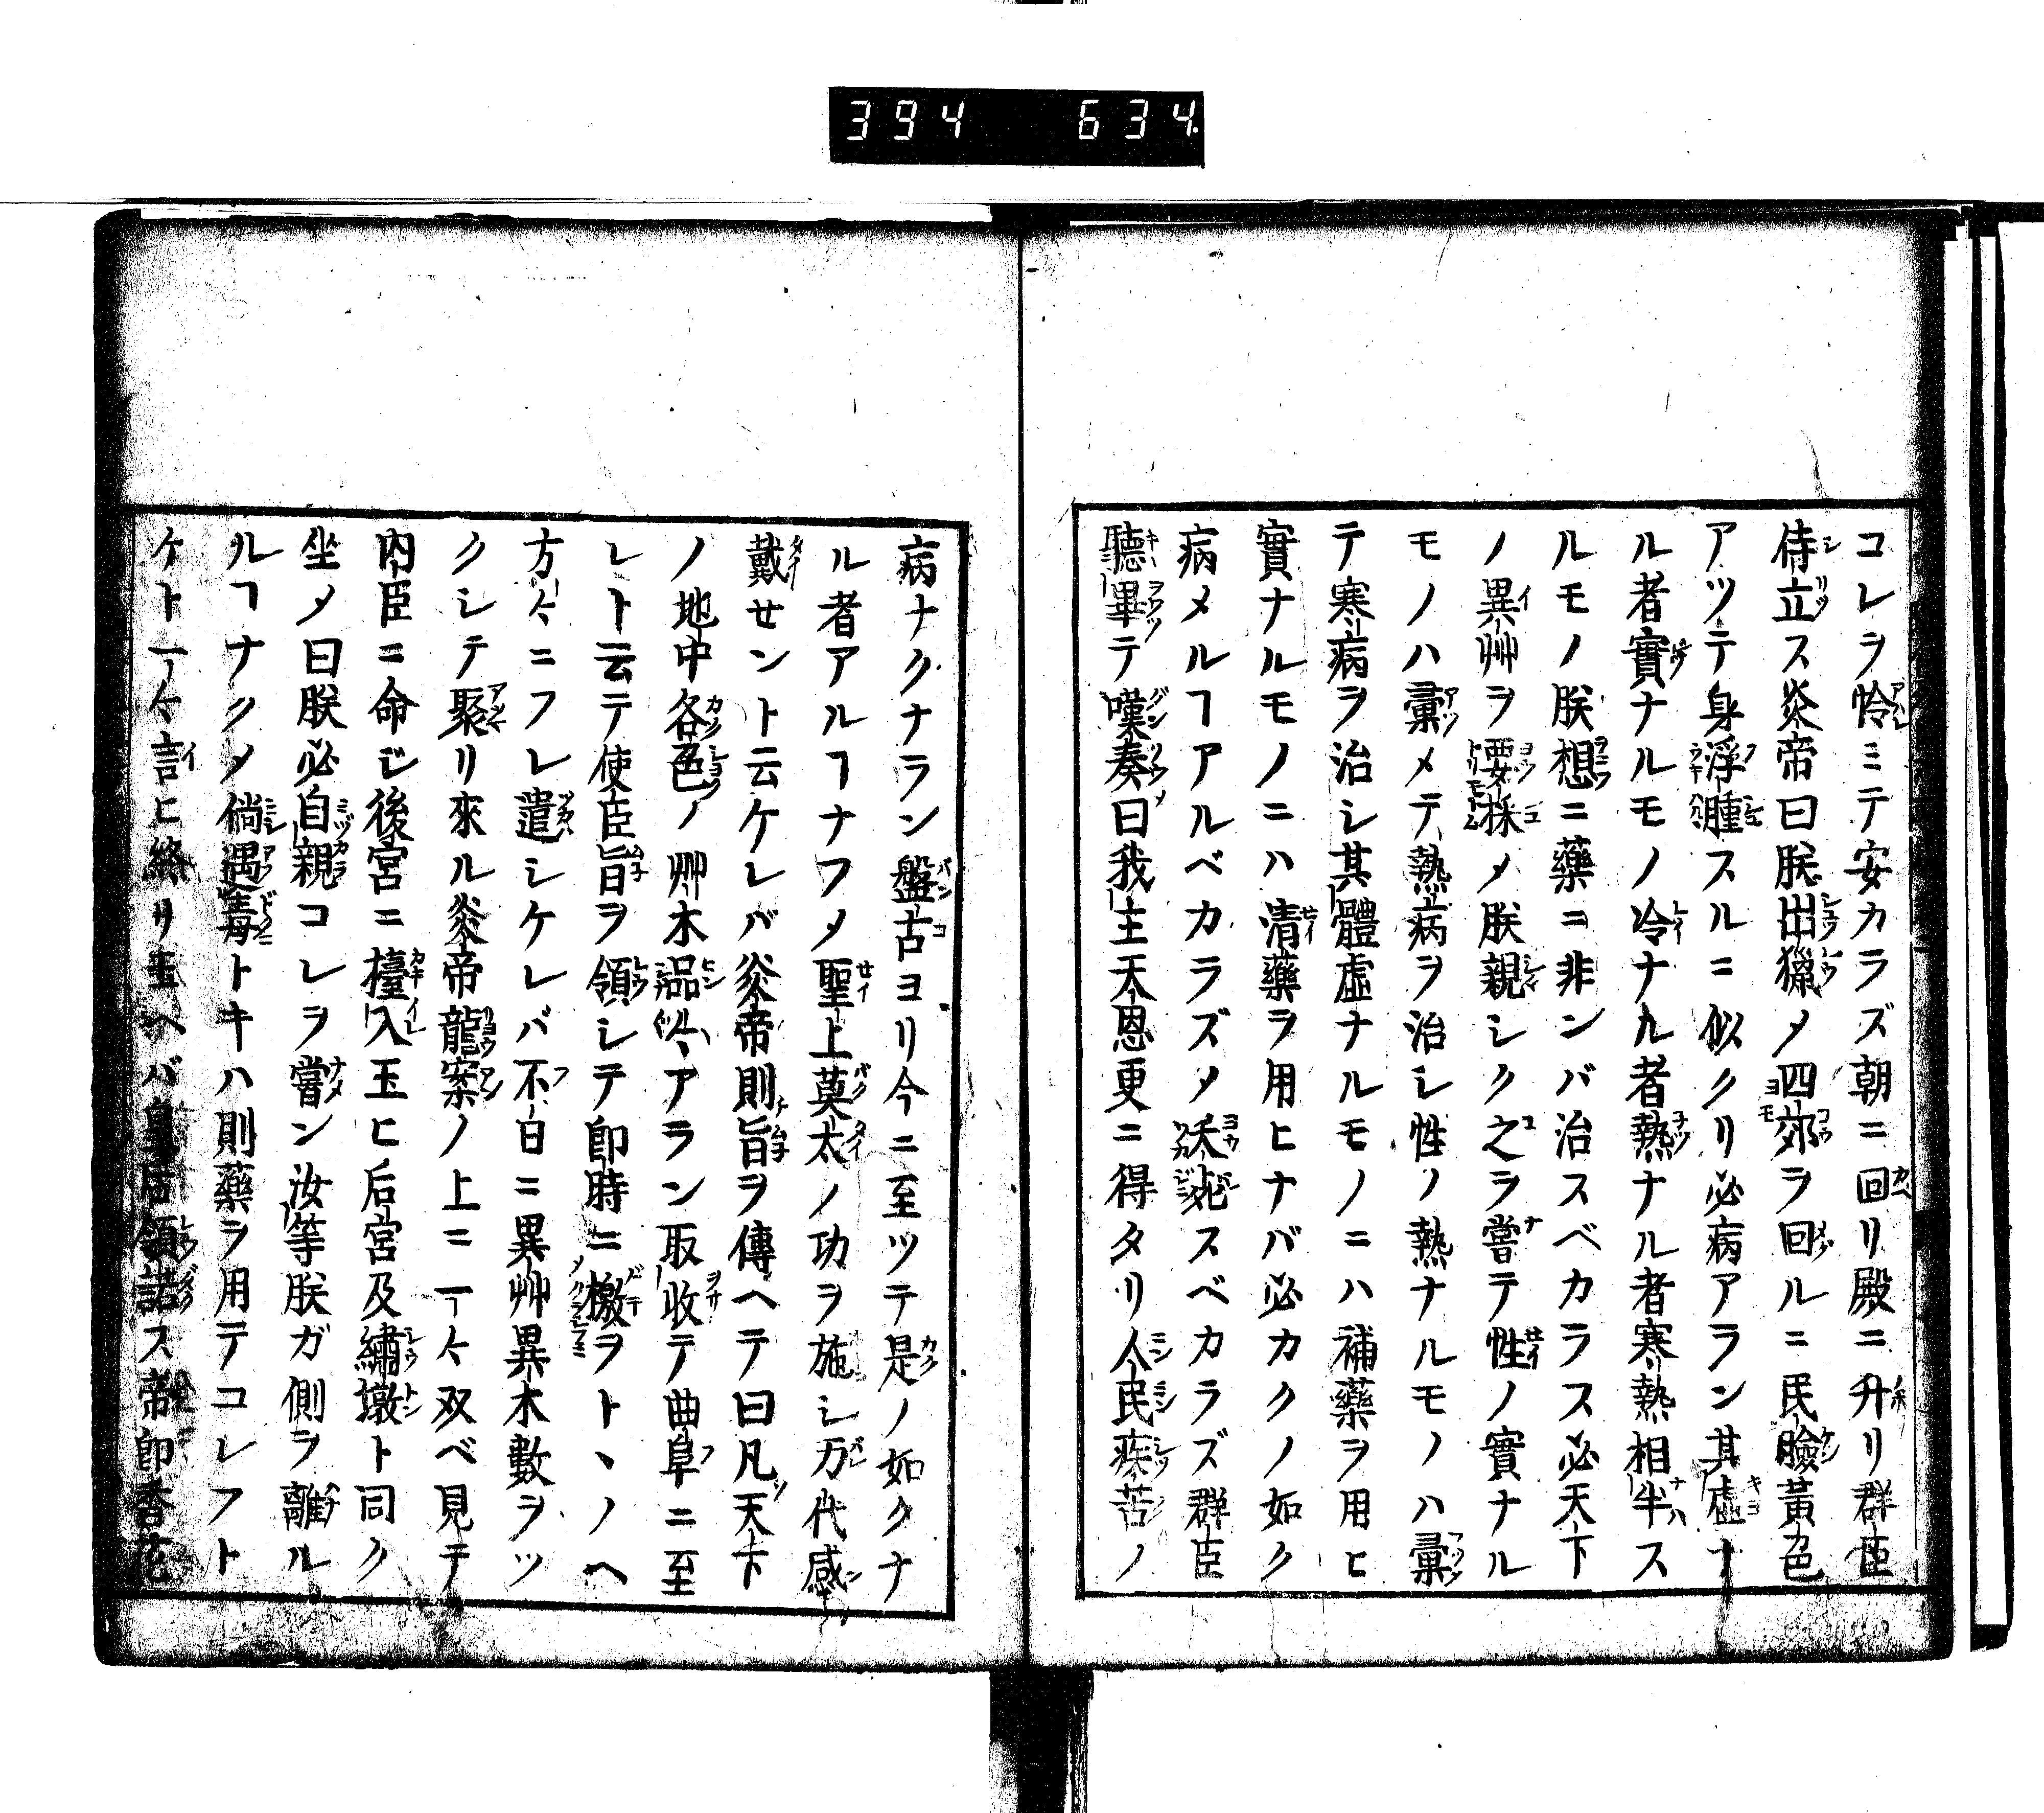 394 634
コレヲ怜ミテ安カラズ朝ニ回リ殿ニ升リ群臣
侍立ス炎帝曰朕出獵メ四郊ヲ回ルニ民臉黃色
アツテ身浮腫スルニ似クリ必病アラン其虛ナ
ル者實ナルモノ冷ナル者熱ナル者寒熱相半ス
ルモノ朕想ニ藥ニ非ンバ治スベカラス必天下
ノ異艸ヲ要採メ朕親シク之ヲ嘗テ性ノ實ナル
モノハ彙メテ熱病ヲ治シ性ノ熱ナルモノハ彙
テ寒病ヲ治シ其體虛ナルモノニハ補藥ヲ用ヒ
實ナルモノニハ清藥ヲ用ヒナバ必カクノ如ク
病メルヿアルベカラズメ夭死スベカラズ群臣
聽畢テ嘆奏曰我主天恩更ニ得タリ人民疾苦ノ
病ナクナラン盤古ヨリ今ニ至ツテ是ノ如クナ
ル者アルヿナフメ聖上莫太ノ功ヲ施シ万代感
戴せント云ケレバ炎帝則旨ヲ傳ヘテ曰凡天下
ノ地中各色ノ艸木品〻アラン取收テ曲阜ニ至
レト云テ使臣旨ヲ領シテ即時ニ檄ヲトヽノヘ
方〻ニフレ遣シケレバ不日ニ異艸異木數ヲツ
クシテ聚リ來ル炎帝龍案ノ上ニ一〻双ベ見テ
內臣ニ命じ後宮ニ擡入玉ヒ后宮及繡墩ト同ク
坐メ曰朕必自親コレヲ嘗ン汝等朕ガ側ヲ離ル
ルヿナクメ倘遇毒トキハ則藥ヲ用テコレフト
ケト一〻言ヒ終リ玉ヘバ皇后領諾ス帝即香花